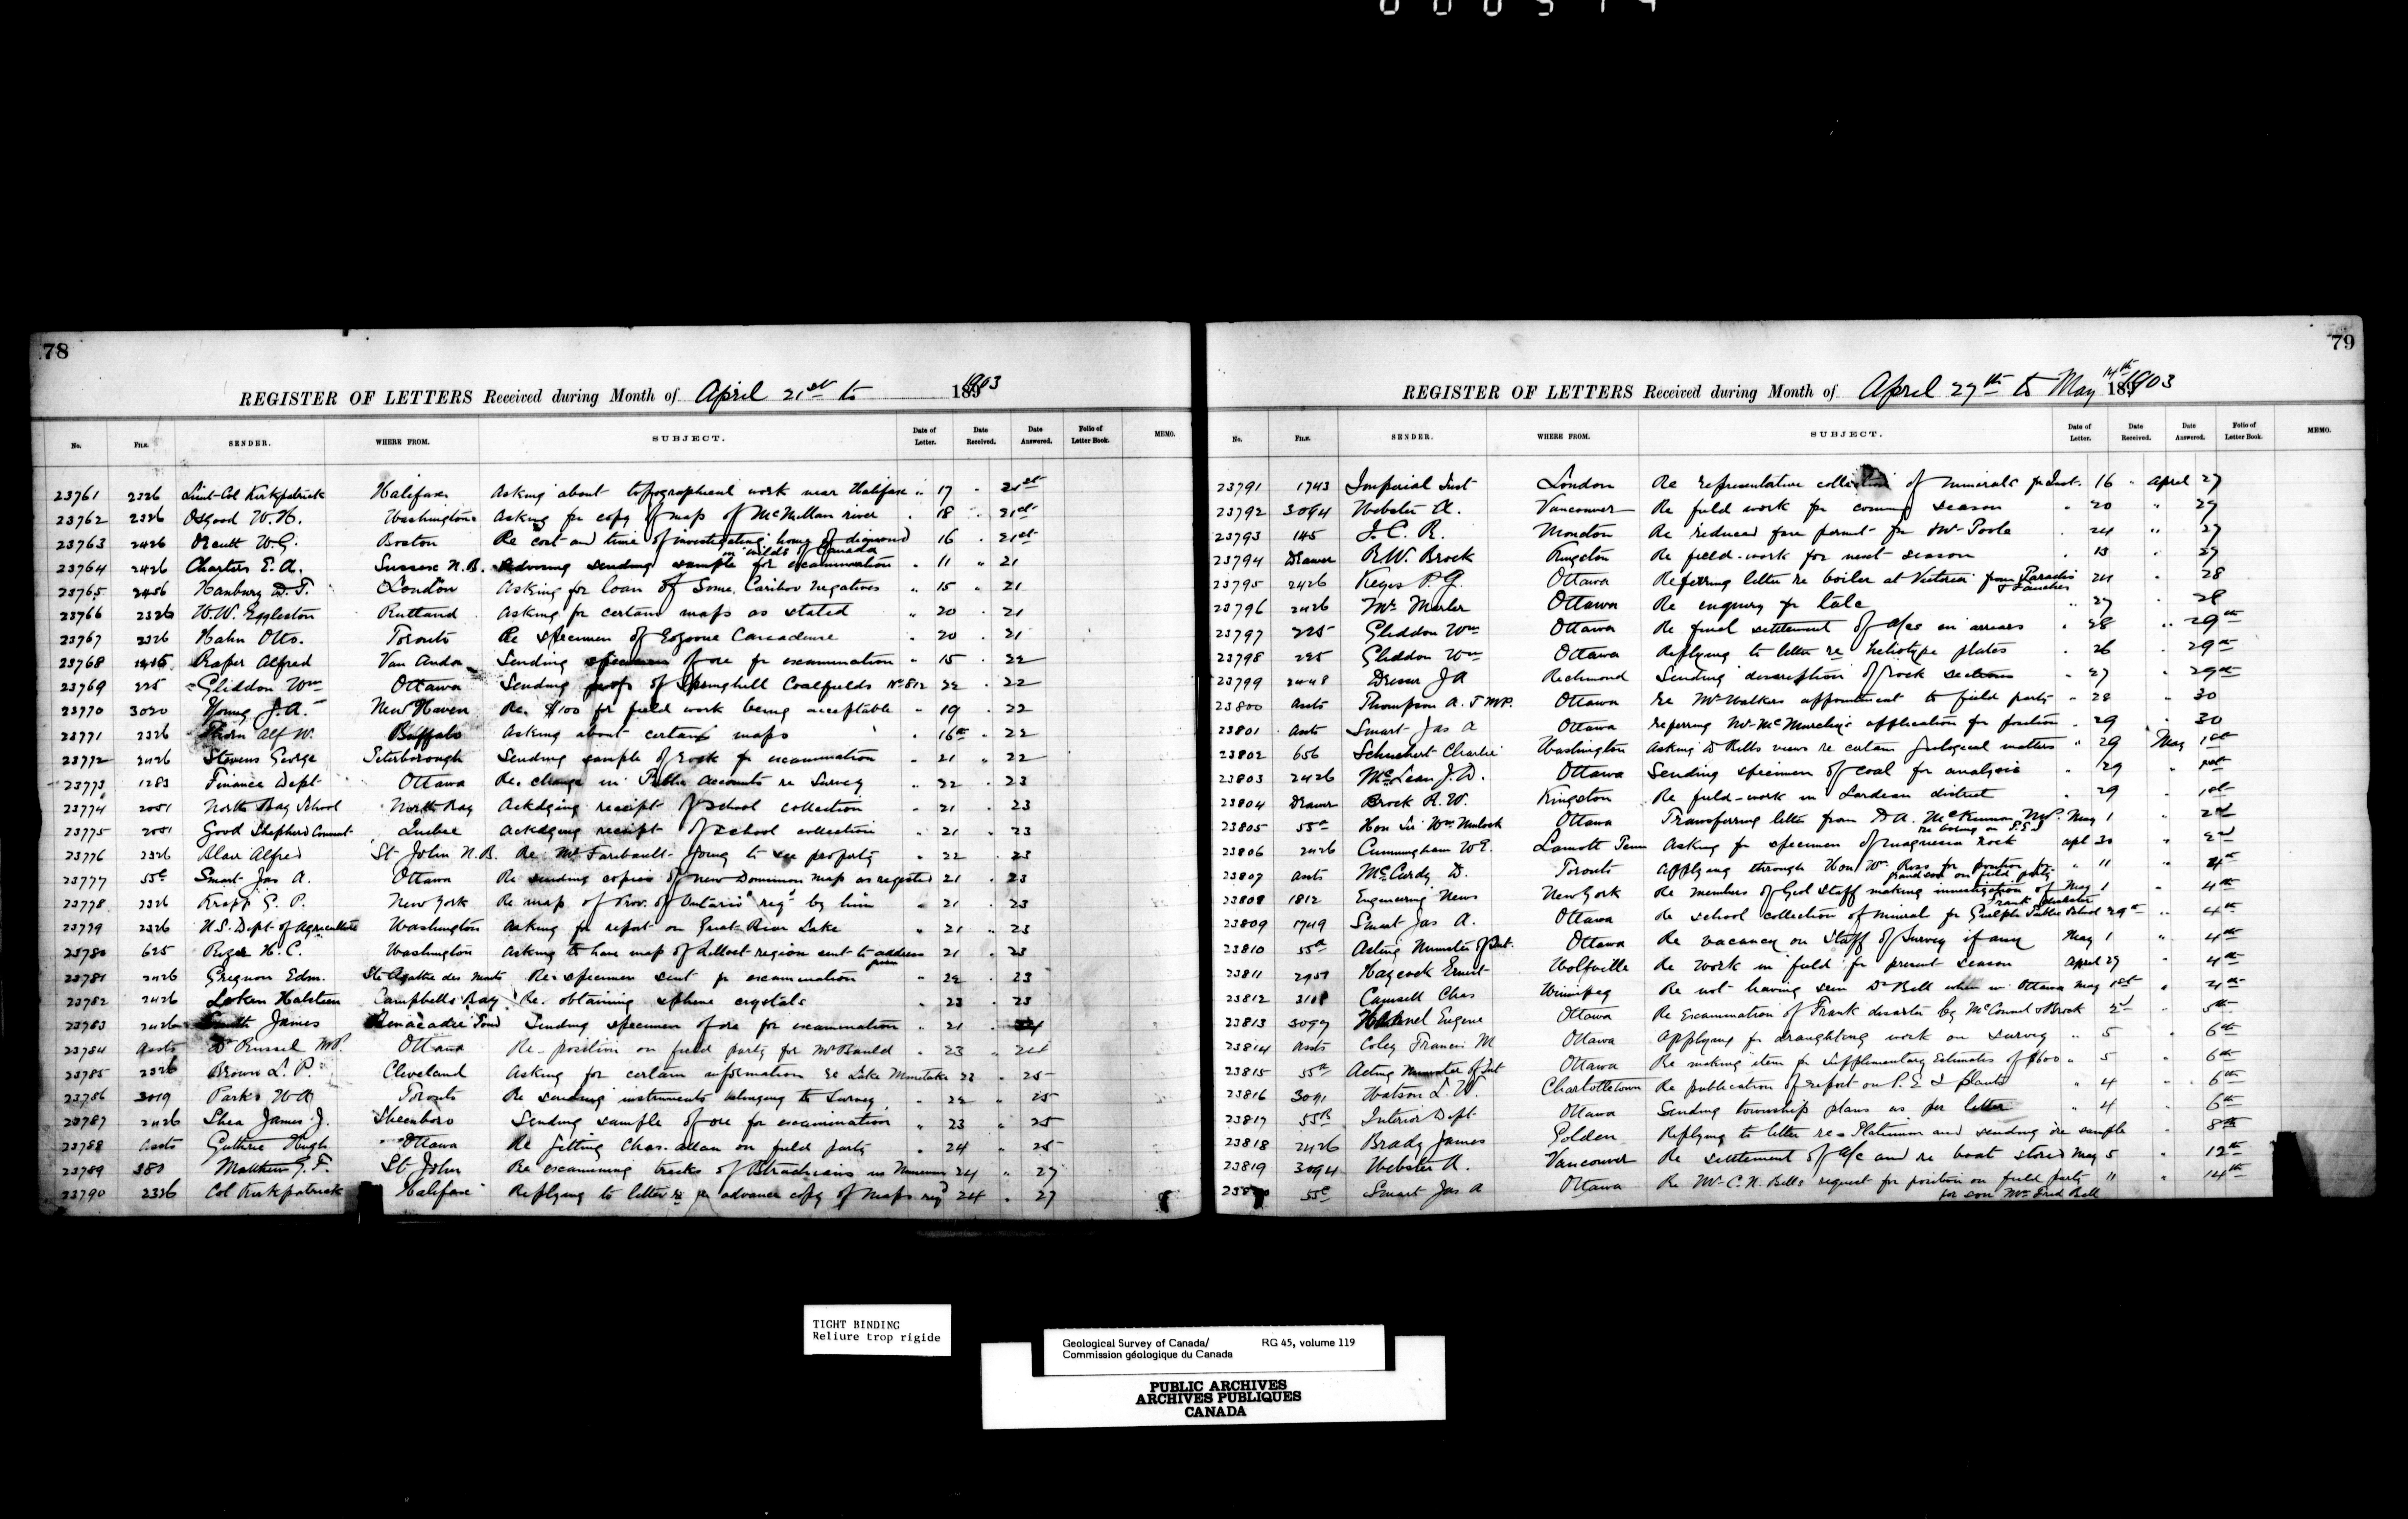 78
REGISTER OF LETTERS Received during Month of April 21st to 1903
No. FILE. SENDER. WHERE FROM. SUBJECT. Date of Letter. Date Received. Date Answered. Folio of Letter Book. MEMO.
23761 2326 Lieut-Col Kirkpatrick Halifax Asking about topographical work near Halifax " 17 " 21st
23762 2326 Osgood W.H. Washington Asking for copy of map of McMillan river " 18 " 21st
23763 2426 Orcutt W.G. Boston Re cost and time of investigating home of diamond 16 " 21st
in wilds of Canada
23764 2426 Charters E.A. Sussex N.B. Advising sending sample for examination " 11 " 21
23765 2456 Hanbury D.T. London Asking for loan of some Caribou negatives " 15 " 21
23766 2326 W.W. Eggleston Rutland Asking for certain maps as stated " 20 " 21
23767 2326 Hahn Otto. Toronto Re specimen of Eozoone Canadense " 20 " 21
23768 1415 Raper Alfred Van Anda Sending specimen of ore for examination " 15 " 22
23769 225 Gliddon Wm Ottawa Sending proofs of Springhill Coalfields No 812 22 " 22
23770 3020 Young J.A. New Haven Re. $100 for field work being acceptable " 19 " 22
23771 2326 Alf W. Buffalo Asking about certain maps " 16th " 22
23772 2426 Stevens George Peterborough Sending sample of rock for examination " 21 " 22
23773 1283 Finance Dept Ottawa Re. change in Public Accounts re Survey " 22 " 23
23774 2051 North Bay School North Bay Ackdging receipt of school collection " 21 " 23
23775 2051 Good Shepherd Convent Quebec Ackdging receipt of school collection " 21 " 23
23776 2326 Blair Alfred St John N.B. Re. Mr Faribault going to see property " 22 " 23
23777 55c Smart Jas A. Ottawa Re sending copies of new Dominion map as requested 21 " 23
23778 2326 Krapp G.P. New York Re map of Prov. of Ontario req'd by him " 21 " 23
23779 2326 U.S. Dept of Agriculture Washington Asking for report on Great Bear Lake " 21 " 23
23780 625 Rizer H.C. Washington Asking to have map of region sent to address 21 " 23
given
23781 2426 Gregnon Edm. Ste Agathe des Monts Re specimen sent for examination " 22 " 23
23782 2426 Halsteen Campbells Bay Re. obtaining sphene crystals " 23 " 23
23783 2426 Smith James Benacadie Pond Sending specimen of ore for examination " 21 " 24
23784 Assts Dr Russel MP. Ottawa Re. position on field party for Mr Bauld " 23 " 24
23785 2326 Brown L.P. Cleveland Asking for certain information re Lake 23 " 25
23786 3019 Parks W A Toronto Re sending instruments belonging to Survey " 22 " 25
23787 2426 Shea James J. Sheenboro Sending sample of ore for examination " 23 " 25
23788 Assts Guthrie Hugh Ottawa Re getting Chas. Allan on field party " 24 " 25
23789 380 Matthew G.F. St John Re examining tracks of Batrachians in Museum 24 " 27
23790 2326 Col Kirkpatrick Halifax Replying to letter re for advance copy of maps req'd 24 " 27
79
REGISTER OF LETTERS Received during Month of April 27th to May 14th 1903
No. FILE. SENDER. WHERE FROM. SUBJECT. Date of Letter. Date Received. Date Answered. Folio of Letter Book. MEMO.
23791 1743 Imperial Inst London Re representative collection of minerals for Inst. 16 " April 27
23792 3094 Webster A. Vancouver Re field work for coming season " 20 " 27
23793 145 I.C.R. Moncton Re reduced fare permit for Mr Poole " 24 " 27
23794 Drawer R.W. Brock Kingston Re field-work for next season " 13 " 27
23795 2426 Keyes P.G. Ottawa Referring letter re boiler at Victoria from Paradis 24 " 28
23796 2426 Mr Marler Ottawa Re enquiry for talc " 27 " 28
23797 225 Gliddon Wm Ottawa Re final settlement of a/cs in arrears " 28 " 29th
23798 225 Gliddon Wm Ottawa Replying to letter re heliotype plates " 26 " 29th
23799 2448 Dresser J A Richmond Sending description of rock sections " 27 " 29th
23800 Assts Thompson A.T MP. Ottawa re Mr Walkers appointment to field party " 28 " 30
23801 Assts Smart Jas A Ottawa referring Mr McMurchy's application for position " 29 " 30
23802 656 Schuchert Charlie Washington Asking Dr Bells views re certain geological matters " 29 May 1st
23803 2426 McLean J.D. Ottawa Sending specimen of coal for analysis " 29 "
23804 Drawer Brock R.W. Kingston Re field-work in Lardeau district " 29 " 1st
23805 55a Hon Sir Wm Mulock Ottawa Transferring letter from D.A. McKinnon MP. May 1 " 2nd
re boring on P.E.I
23806 2426 Cunningham W E. Lamott Penn Asking for specimen of magnesia rock apl 30 " 2nd
23807 Assts McCurdy D. Toronto Applying through Hon Wm Ross for position for " 11 " 4th
grandson on field party
23808 1812 Engineering News New York Re members of Geol Staff making investigation of May 1 " 4th
Frank disaster
23809 1749 Smart Jas A. Ottawa Re school collection of mineral for Guelph Public School 29th " 4th
23810 55a Acting Minister of Int. Ottawa Re vacancy on Staff of Survey if any May 1 " 4th
23811 2951 Haycock Ernest Wolfville Re work in field for present season April 29 " 4th
23812 3108 Camsell Chas Winnipeg Re not having seen Dr Bell when in Ottawa May 1st " 4th
23813 3097 Eugene Ottawa Re Examination of Frank disaster by McConnel & Brock 2d " 5th
23814 Assts Coley Francis M Ottawa Applying for draughting work on survey " 5 " 6th
23815 55a Acting Minister of Int Ottawa Re making item for Supplementary Estimates of $600 " 5 " 6th
23816 3091 Watson L.W. Charlottetown Re publication of report on P.E I plants " 4 " 6th
23817 55B Interior Dept Ottawa Sending township plans as per letter " 4 " 6th
23818 2426 Brady James Golden Replying to letter re Platinum and sending ore sample " 8th
23819 3094 Webster A. Vancouver Re settlement of a/c and re boat stored May 5 " 12th
55c Smart Jas A Ottawa Re Mr C.N. Bells request for position on field party " 11 " 14th
for son Mr Fred Bell
TIGHT BINDING
Reliure trop rigide
Geological Survey of Canada/ RG 45, volume 119
Commission géologique du Canada
PUBLIC ARCHIVES
ARCHIVES PUBLIQUES
CANADA